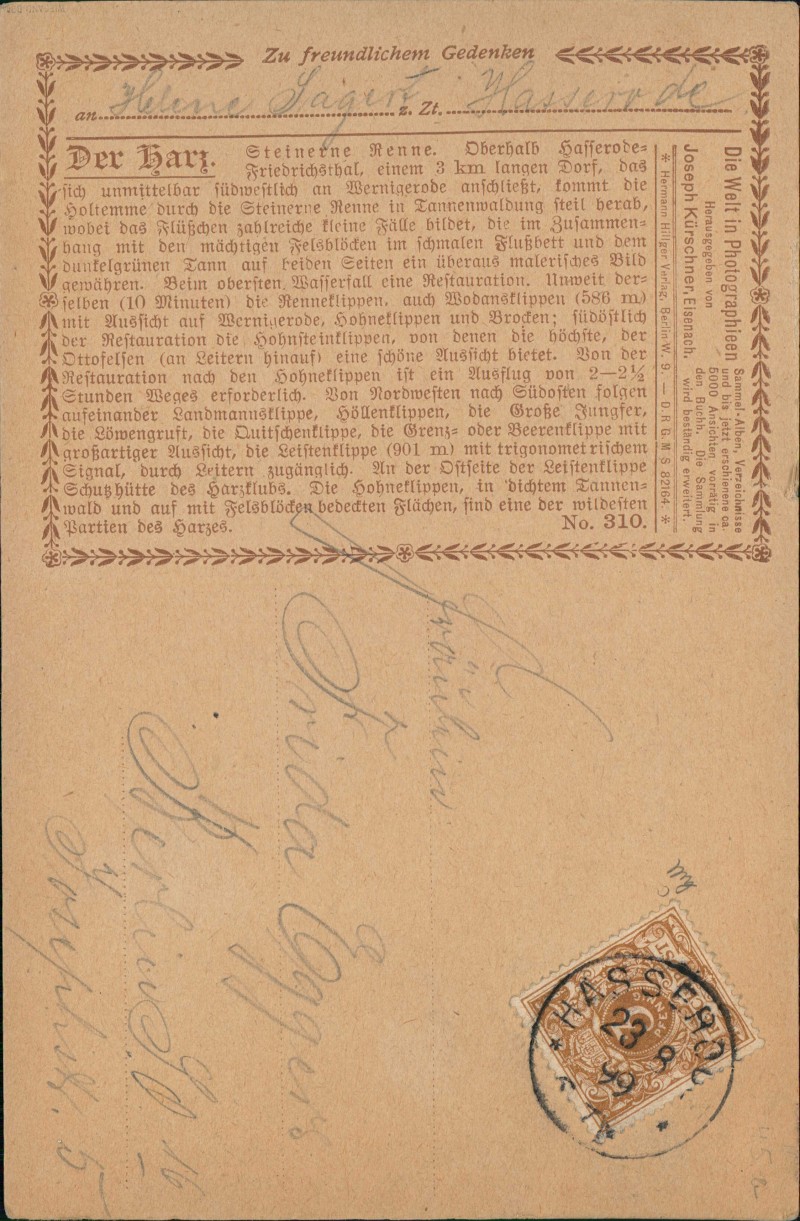 Zu freundlichem Gedenken
an Helene Sägert z. Zt. Hasserode
Der Harz. Steinerne Renne. Oberhalb Hasserode-
Friedrichsthal, einem 3 km langen Dorf, das
sich unmittelbar südwestlich an Wernigerode anschließt, kommt die
Holtemme durch die Steinerne Renne in Tannenwaldung steil herab,
wobei das Flüßchen zahlreiche kleine Fälle bildet, die im Zusammen-
hang mit den mächtigen Felsblöcken im schmalen Flußbett und dem
dunkelgrünen Tann auf beiden Seiten ein überaus malerisches Bild
gewähren. Beim obersten Wasserfall eine Restauration. Unweit der-
selben (10 Minuten) die Renneklippen, auch Wodansklippen (586 m)
mit Aussicht auf Wernigerode, Hohneklippen und Brocken; südöstlich
der Restauration die Hohnsteinklippen, von denen die höchste, der
Ottofelsen (an Leitern hinauf) eine schöne Aussicht bietet. Von der
Restauration nach den Hohneklippen ist ein Ausflug von 2—2½
Stunden Weges erforderlich. Von Nordwesten nach Südosten folgen
aufeinander Landmannsklippe, Höllenklippen, die Große Jungfer,
die Löwengruft, die Quitschenklippe, die Grenz- oder Beerenklippe mit
großartiger Aussicht, die Leistenklippe (901 m) mit trigonometrischem
Signal, durch Leitern zugänglich. An der Ostseite der Leistenklippe
Schutzhütte des Harzklubs. Die Hohneklippen, in dichtem Tannen-
wald und auf mit Felsblöcken bedeckten Flächen, sind eine der wildesten
Partien des Harzes. No. 310.
Die Welt in Photographieen
Herausgegeben von
Joseph Kürschner, Eisenach.
* Hermann Hillger Verlag, Berlin W. 9. — D. R. G. M. S. 82164. *
Sammel-Alben, Verzeichnisse
und bis jetzt erschienene ca.
5000 Ansichten vorrätig in
den Buchh. Die Sammlung
wird beständig erweitert.
Fräulein
Frida Eggers
Berlin SO 16
Josephstr. 5
HASSERODE
23 8
99